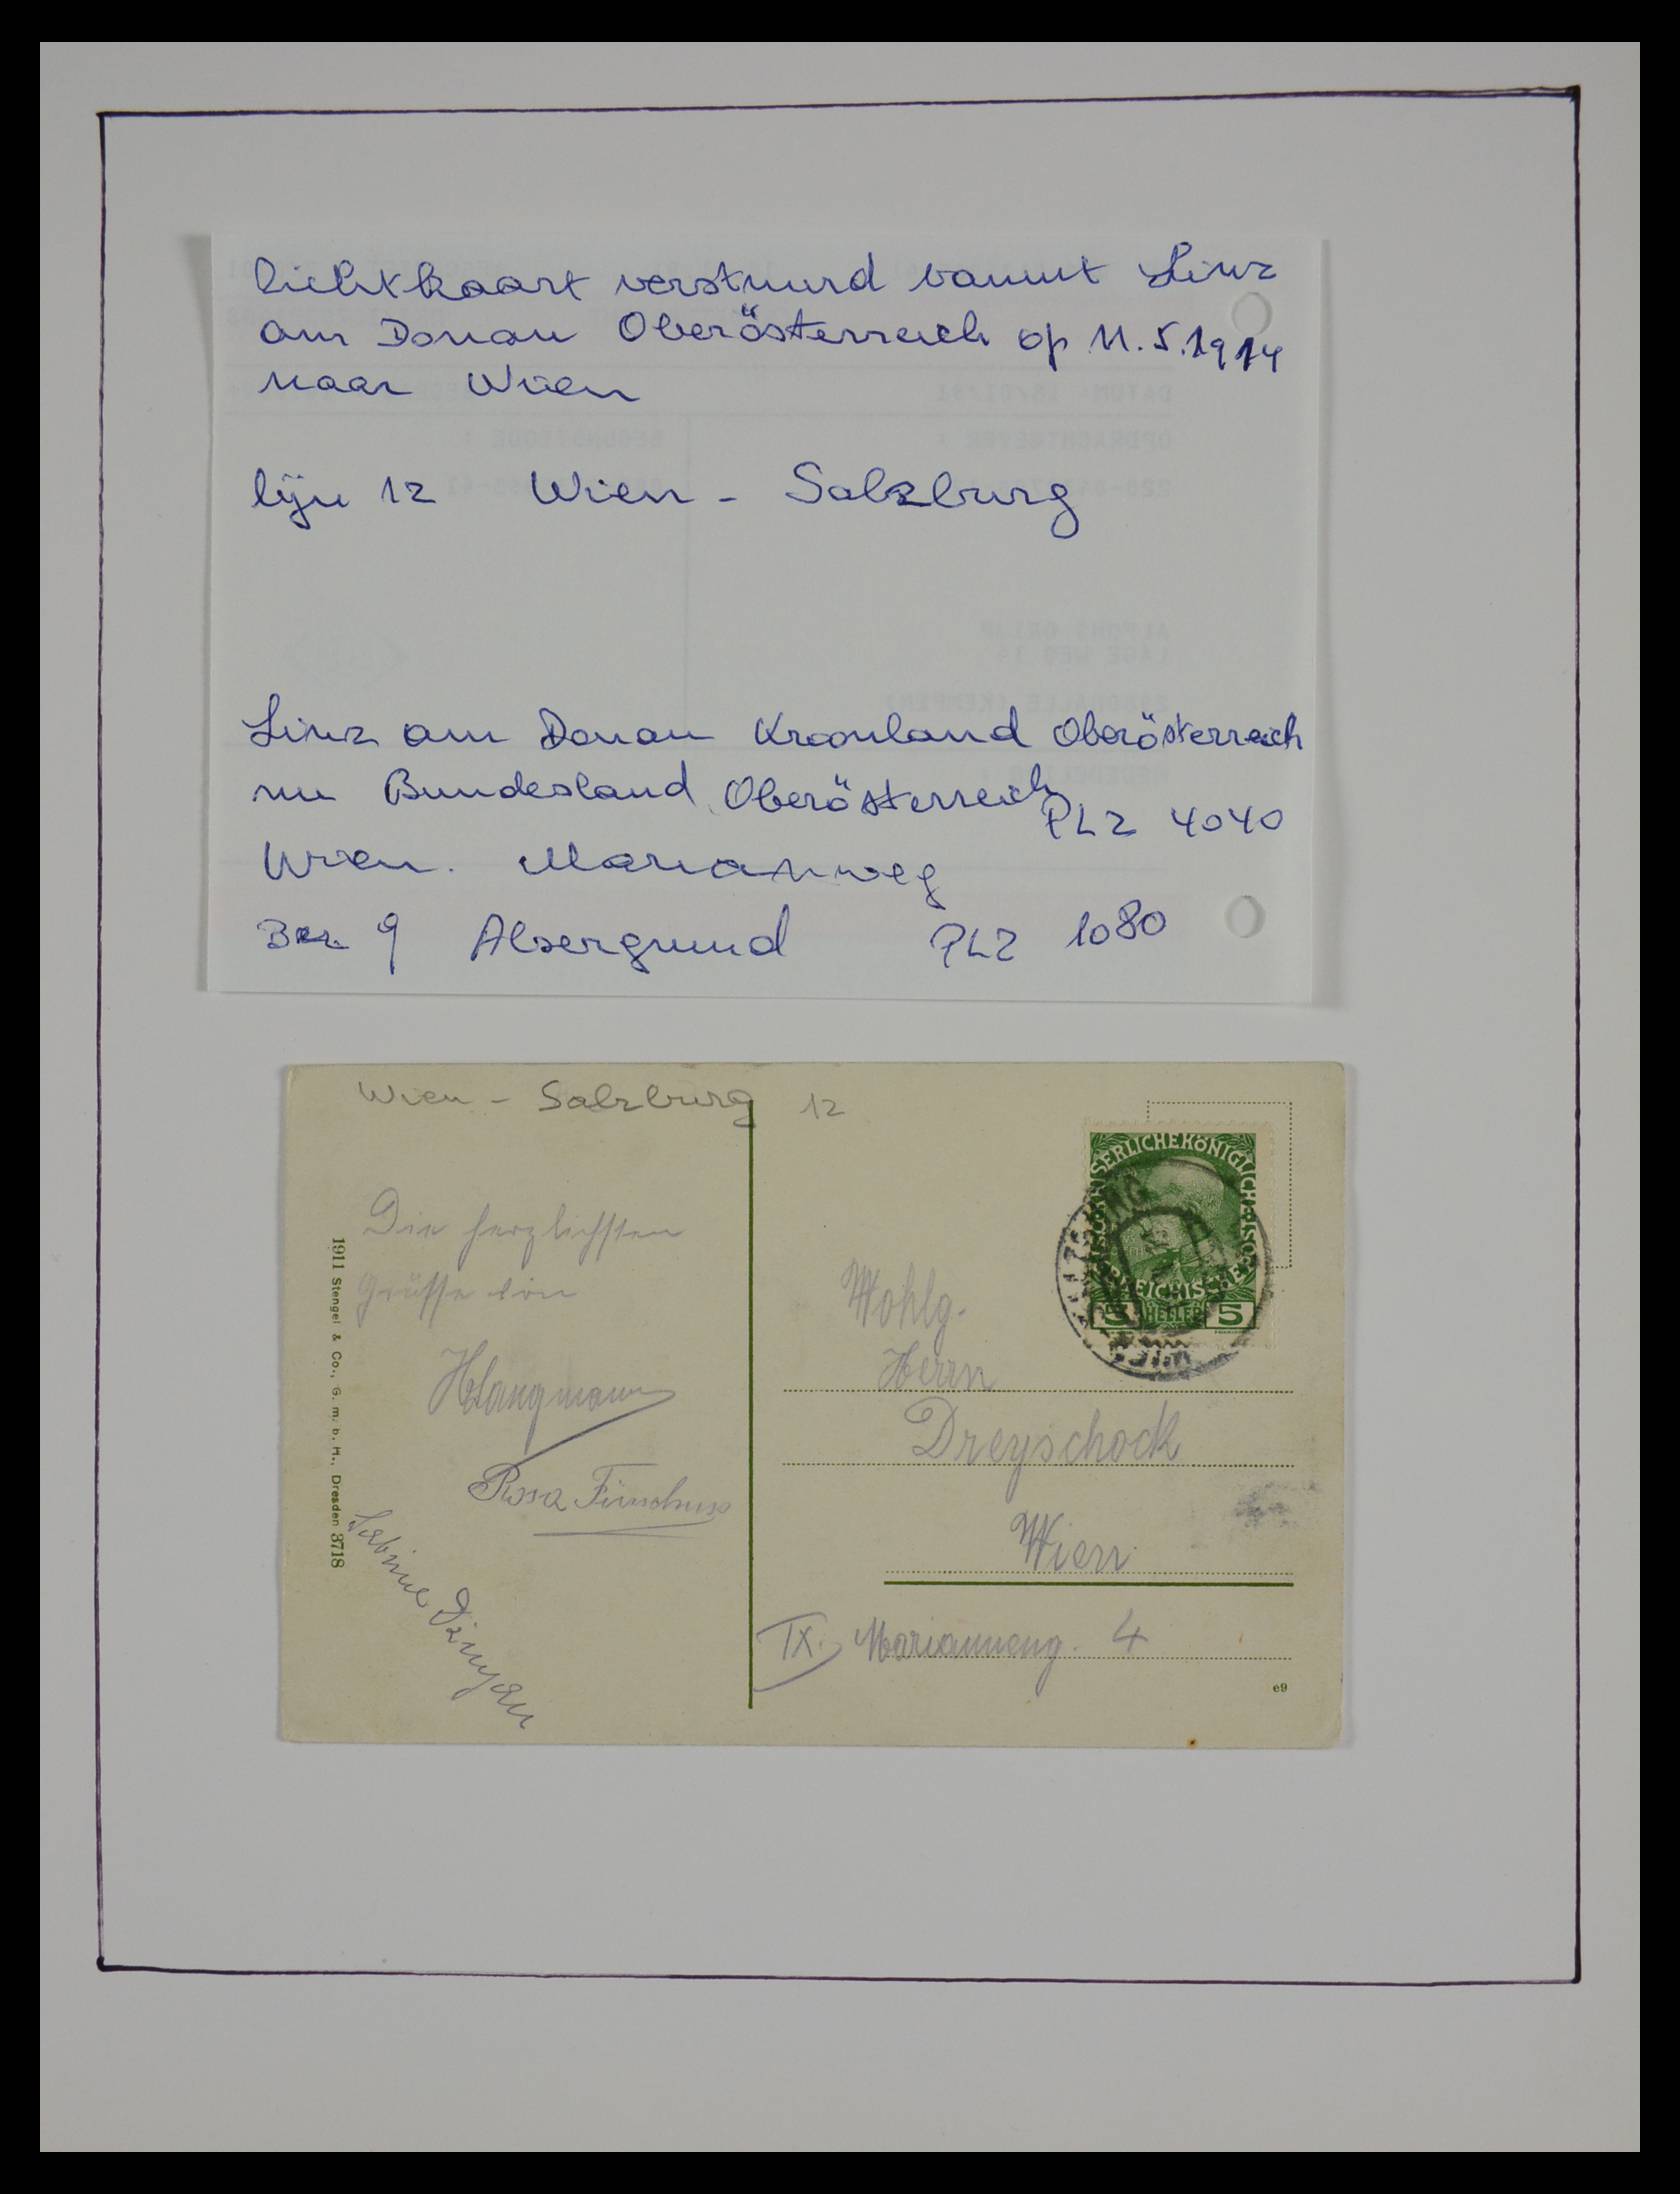 lichtkaart verstuurd vanuit Linz
am Donau Oberösterreich op 11.5.1914
naar Wien
lijn 12 Wien - Salzburg
Linz am Donau Kroonland Oberösterreich
nu Bundesland Oberösterreich
PLZ 4040
Wien. Marianweg
Bez 9 Alsergrund PLZ 1080
Wien - Salzburg 12
Die herzlichsten
Grüsse von
HLangmann
Rosa
Sabine
1911 Stengel & Co., G. m. b. H., Dresden 3718
KAISERLICHE KÖNIGLICHE
ÖSTERREICHISCHE
5 HELLER 5
WIEN
Wohlg.
Herrn
Dreyschock
Wien
IX. Marianneng. 4
e9